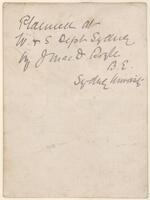 Planned at
W. & S. Dept Sydney
by J Mac D. Royle
B.E.
Sydney University